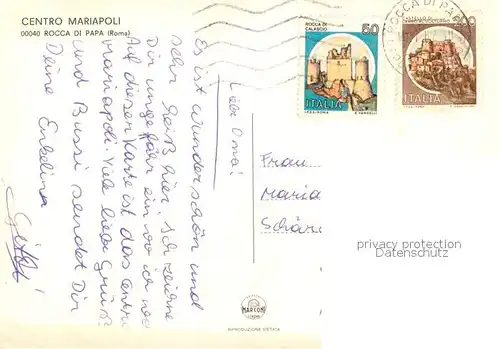 CENTRO MARIAPOLI
00040 ROCCA DI PAPA (Roma)
Liebe Oma!
Es ist wunderschön und
sehr heiß hier. Ich zeichne
Dir ungefähr ein wo ich
Auf dieser Karte ist das Centro
Mariapoli. Viele liebe Grüße
und Bussi sendet Dir
Deine Enkelin
ROCCA DI
CALASCIO
50
ITALIA
I.P.Z.S. ROMA
ROCCA DI PAPA
ITALIA
Frau
Maria
Schär
privacy protection
Datenschutz
MARCONI
RIPRODUZIONE VIETATA